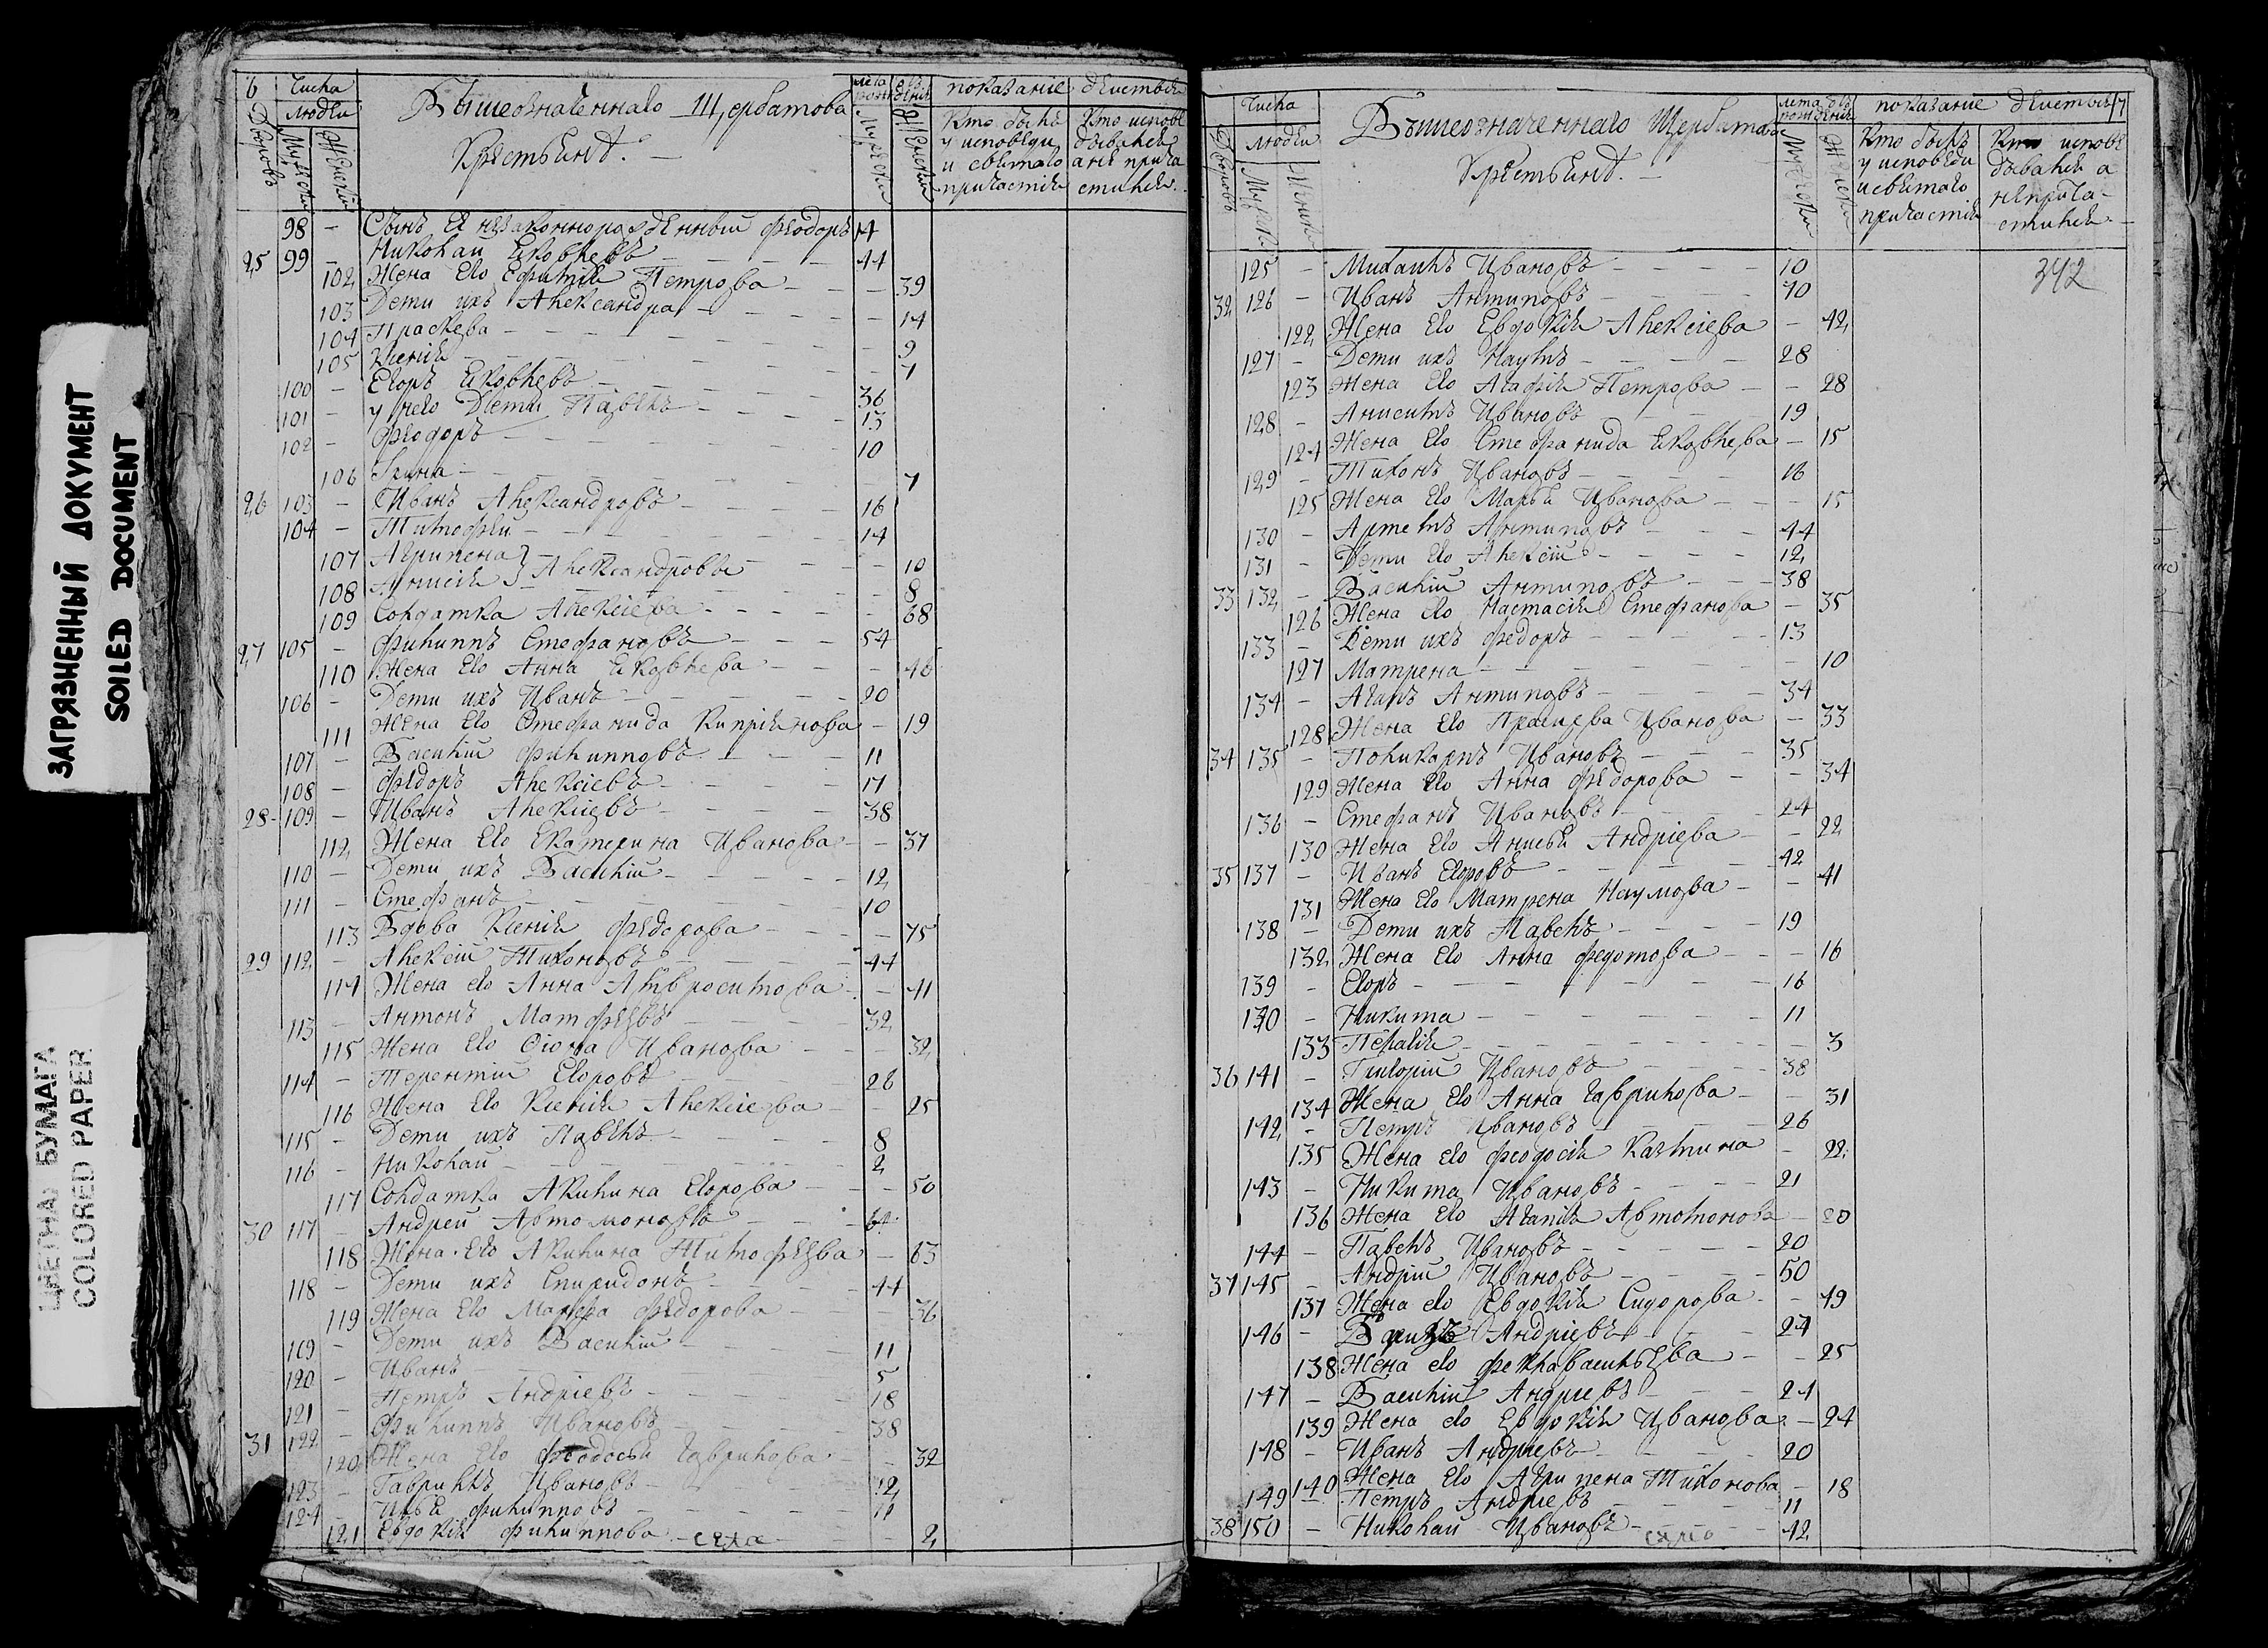 ЗАГРЯЗНЕННЫЙ ДОКУМЕНТ
SOILED DOCUMENT
ЦВЕТНА БУМАГА
COLORED PAPER
6
Числа
людеи
Дворовъ
Мужеска
Женски
Вышеозначеннаго Щербатова
Крестьянъ.
лета от рождения
Мужеска
Женска
показание действъ
Кто былъ у исповеди и святаго причастия
Кто исповедывался а не причастился
98 – Сынъ ея незаконнорожденный Феодоръ 14
25 99 – Николай Яковлевъ 44
102 Жена его Ефимия Петрова 39
103 Дети ихъ Александра 14
104 Праскева 9
105 Ксения 7
100 – Егоръ Яковлевъ 36
101 – У него дети Павелъ 13
102 – Феодоръ 10
106 Ирина 7
26 103 – Иванъ Александровъ 16
104 – Тимофей 14
107 Агрипена } Александровы 10
108 Анисия 8
109 Солдатка Алексіева 68
27 105 – Филиппъ Стефановъ 54
110 Жена его Анна Яковлева 48
106 – Дети ихъ Иванъ 20
111 Жена его Стефанида Кипріянова 19
107 – Василій Филипповъ 11
108 – Федоръ Алексіевъ 17
28 109 – Иванъ Алексіевъ 38
112 Жена его Екатерина Иванова 37
110 – Дети ихъ Василій 12
111 – Стефанъ 10
113 Вдова Ксения Федорова 75
29 112 – Алексій Тихоновъ 44
114 Жена его Анна Амвросимова 41
113 – Антонъ Матфеевъ 32
115 Жена его Фіокла Иванова 32
114 – Терентій Егоровъ 28
116 Жена его Ксения Алексіева 25
115 – Дети ихъ Павелъ 8
116 – Николай 2
117 Солдатка Акилина Егорова 50
30 117 – Андрей Автомоновъ 64
118 Жена его Акилина Тимофеева 63
118 – Дети ихъ Спиридонъ 44
119 Жена его Марфа Федорова 36
119 – Дети ихъ Василій 11
120 – Иванъ 5
121 – Петръ Андріевъ 18
31 122 – Филиппъ Ивановъ 38
120 Жена его Феодосья Гаврилова 32
123 – Гаврилъ Ивановъ 12
124 – Илья Филипповъ 11
121 Евдокия Филиппова 2
села
7
Числа
людеи
Дворовъ
Мужеска
Женски
Вышеозначеннаго Щербатова
Крестьянъ.
лета от рождения
Мужеска
Женска
показание действъ
Кто былъ у исповеди и святаго причастия
Кто исповедывался а непричастился
342
125 – Михаилъ Ивановъ 10
32 126 – Иванъ Антиповъ 70
122 Жена его Евдокия Алексіева 42
127 – Дети ихъ Наумъ 28
123 Жена его Агафия Петрова 28
128 – Анисимъ Ивановъ 19
124 Жена его Стефанида Яковлева 15
129 – Тихонъ Ивановъ 16
125 Жена его Марья Иванова 15
130 – Артемъ Антиповъ 44
131 – Дети его Алексій 12
33 132 – Василій Антиповъ 38
126 Жена его Настасия Стефанова 35
133 – Дети ихъ Федоръ 13
127 Матрена 10
134 – Агапъ Антиповъ 34
128 Жена его Прасцева Иванова 33
34 135 – Поликарпъ Ивановъ 35
129 Жена его Анна Федорова 34
136 – Стефанъ Ивановъ 24
130 Жена его Анисья Андріева 22
35 137 – Иванъ Егоровъ 42
131 Жена его Матрена Наумова 41
138 – Дети ихъ Павелъ 19
132 Жена его Анна Федотова 16
139 – Егоръ 16
140 – Никита 11
133 Пелагия 3
36 141 – Григорій Ивановъ 38
134 Жена его Анна Гаврилова 31
142 – Петръ Ивановъ 26
135 Жена его Феодосия Казмина 22
143 – Никита Ивановъ 21
136 Жена его Агапия Автомонова 20
144 – Павелъ Ивановъ 20
37 145 – Андрій Ивановъ 50
137 Жена его Евдокия Сидорова 49
146 – Андріевъ 24
138 Жена его Фекла Васильева 25
147 – Василій Андріевъ 21
139 Жена его Евдокия Иванова 24
148 – Иванъ Андріевъ 20
140 Жена его Агрипена Тихонова 18
149 – Петръ Андріевъ 11
38 150 – Николай Ивановъ 42